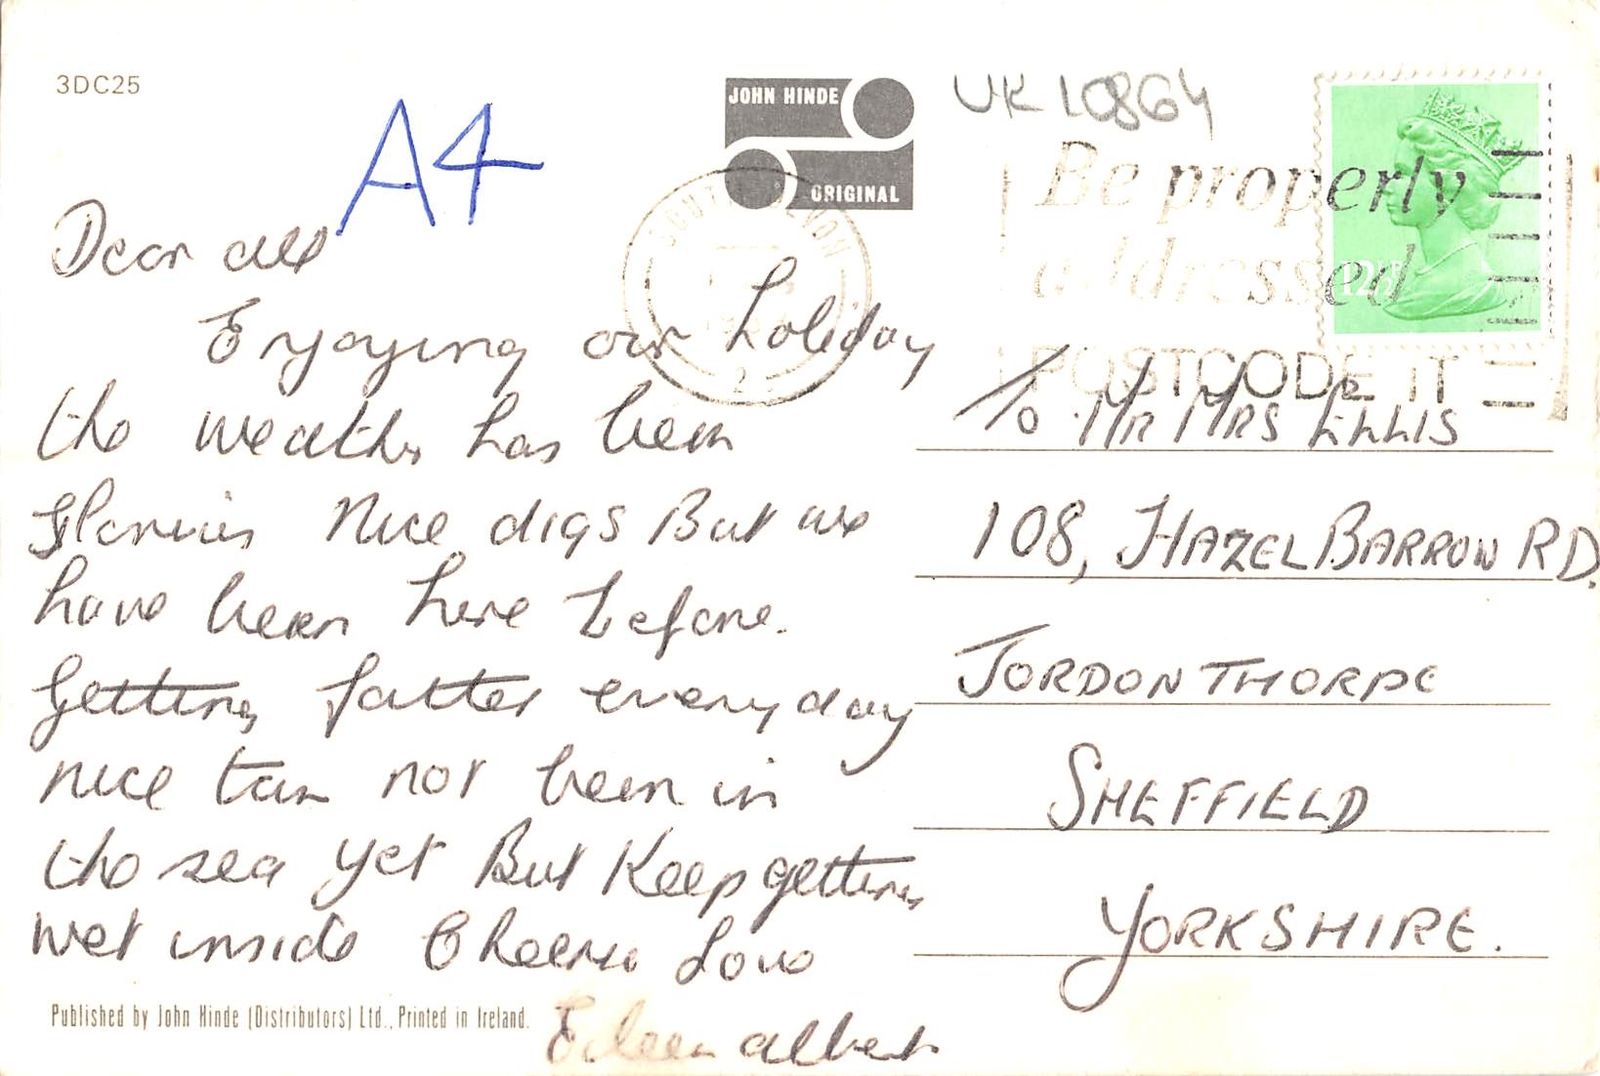 3DC25
A4
JOHN HINDE
ORIGINAL
UK 10864
Be properly
addressed
POSTCODE IT
12½P
Dear all
Enjoying our holiday
the weather has been
Glorious Nice digs But we
have been here before.
Getting fatter every day
nice tan not been in
the sea yet But Keep getting
wet inside Cheers Love
Eileen albert
To Mr MRS ELLIS
108, HAZELBARROW RD.
JORDONTHORPE
SHEFFIELD
YORKSHIRE.
Published by John Hinde (Distributors) Ltd., Printed in Ireland.